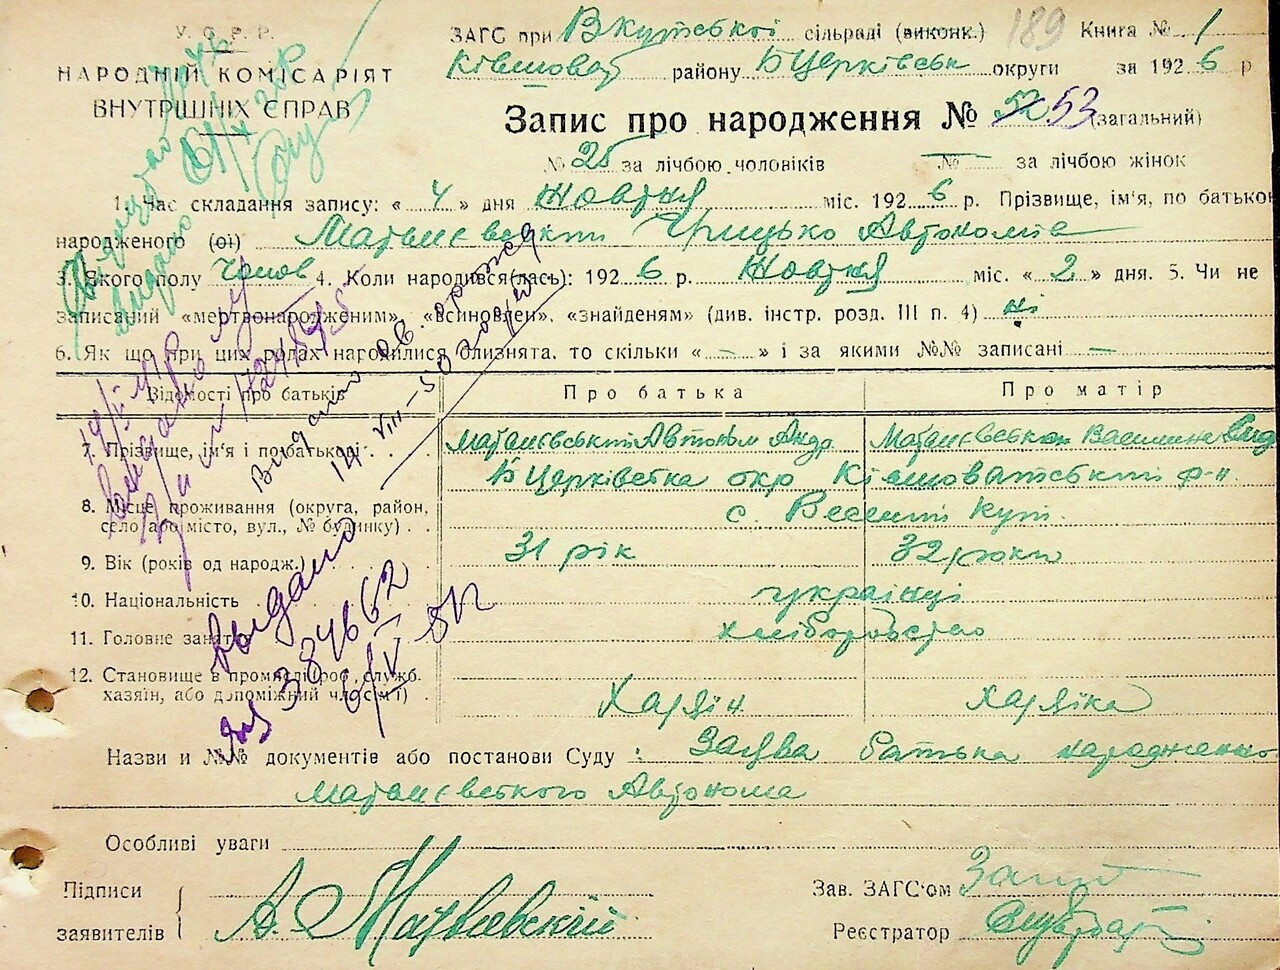 У.С.Р.Р.
НАРОДНІЙ КОМІСАРІЯТ
ВНУТРІШНІХ СПРАВ
ЗАГС при Вкутській сільраді (виконк.) 189 Книга № 1
району БЦерківськ округи за 1926 р
Запис про народження № 52 53 (загальний)
№ 25 за лічбою чоловіків № — за лічбою жінок
1. Час складання запису: « 4 » дня Жовтня міс. 1926 р. Прізвище, ім'я, по батькові
народженого (ої) Матвиєвський Грицько Автономів
3. Якого полу Чолов 4. Коли народився(лась): 1926 р. Жовтня міс. « 2 » дня. 5. Чи не
записаний «мертвонародженим», «всиновлен», «знайденям» (див. інстр. розд. III п. 4) ні
6. Як що при цих родах народилися близнята, то скільки « — » і за якими №№ записані —
Відомості про батьків Про батька Про матір
7. Прізвище, ім'я і по батькові Матвиєвський Автоном Андр Матвиєвська Василина
БЦерківська окр Ківшоватський р-н
8. Місце проживання (округа, район,
село або місто, вул., № будинку) с. Веселий Кут
9. Вік (років од народж.) 31 рік 32 роки
10. Національність українці
11. Головне заняття хліборобство
12. Становище в промислі (роб., служб.
хазяїн, або допоміжний член сім'ї) Хазяїн хазяїка
Назви и №№ документів або постанови Суду: Заява батька народженого
Матвиєвського Автонома
Особливі уваги
Підписи
заявителів А. Матвиевский
Зав. ЗАГС'ом
Реєстратор
Видано
14 VIII-50
выдано
384662